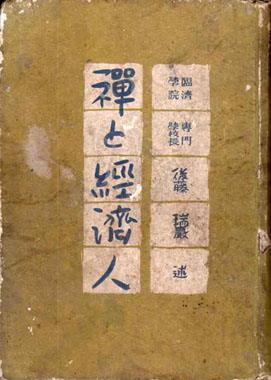 臨濟學院
專門學校長
後藤瑞巖述
禪と經濟人